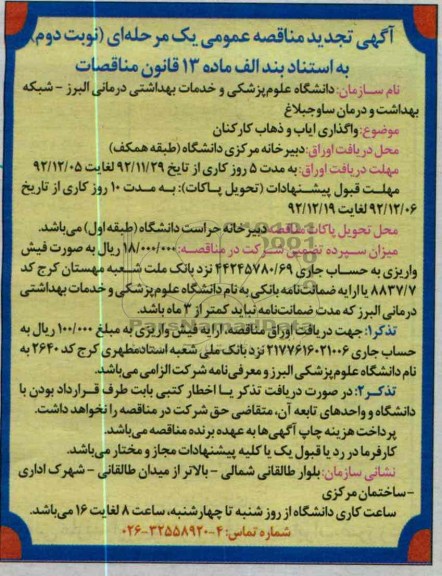 آگهی تجدید مناقصه عمومی یک مرحله‌ای (نوبت دوم)
به استناد بند الف ماده ۱۳ قانون مناقصات
نام سازمان: دانشگاه علوم‌پزشکی و خدمات بهداشتی درمانی البرز – شبکه
بهداشت و درمان ساوجبلاغ
موضوع: واگذاری ایاب و ذهاب کارکنان
محل دریافت اوراق: دبیرخانه مرکزی دانشگاه (طبقه همکف)
مهلت دریافت اوراق: به مدت ۵ روز کاری از تایخ ۹۲/۱۱/۲۹ لغایت ۹۲/۱۲/۰۵
مهلت قبول پیشنهادات (تحویل پاکات): به مدت ۱۰ روز کاری از تاریخ
۹۲/۱۲/۰۶ لغایت ۹۲/۱۲/۱۹
محل تحویل پاکات مناقصه دبیرخانه حراست دانشگاه (طبقه اول) می‌باشد.
میزان سپرده تضمین شرکت در مناقصه: ۱۸/۰۰۰/۰۰۰ ریال به صورت فیش
واریزی به حساب جاری ۴۴۲۴۵۷۸۰/۶۹ نزد بانک ملت شعبه مهستان کرج کد
۸۸۳۷/۷ یا ارایه ضمانت‌نامه بانکی به نام دانشگاه علوم‌پزشکی و خدمات بهداشتی
درمانی البرز که مدت ضمانت‌نامه نباید کمتر از ۳ ماه باشد.
تذکر۱: جهت دریافت اوراق مناقصه، ارایه فیش واریزی به مبلغ ۱۰۰/۰۰۰ ریال به
حساب جاری ۲۱۷۷۶۱۶۰۲۱۰۰۶ نزد بانک ملی شعبه استادمطهری کرج کد ۲۶۴۰ به
نام دانشگاه علوم‌پزشکی البرز و معرفی‌نامه شرکت الزامی می‌باشد.
تذکر۲: در صورت دریافت تذکر یا اخطار کتبی بابت طرف قرارداد بودن با
دانشگاه و واحدهای تابعه آن، متقاضی حق شرکت در مناقصه را نخواهد داشت.
پرداخت هزینه چاپ آگهی‌ها به عهده برنده مناقصه می‌باشد.
کارفرما در رد یا قبول یک یا کلیه پیشنهادات مجاز و مختار می‌باشد.
نشانی سازمان: بلوار طالقانی شمالی – بالاتر از میدان طالقانی – شهرک اداری
– ساختمان مرکزی
ساعت کاری دانشگاه از روز شنبه تا چهارشنبه، ساعت ۸ لغایت ۱۶ می‌باشد.
شماره تماس: ۴-۳۲۵۵۸۹۲۰-۰۲۶